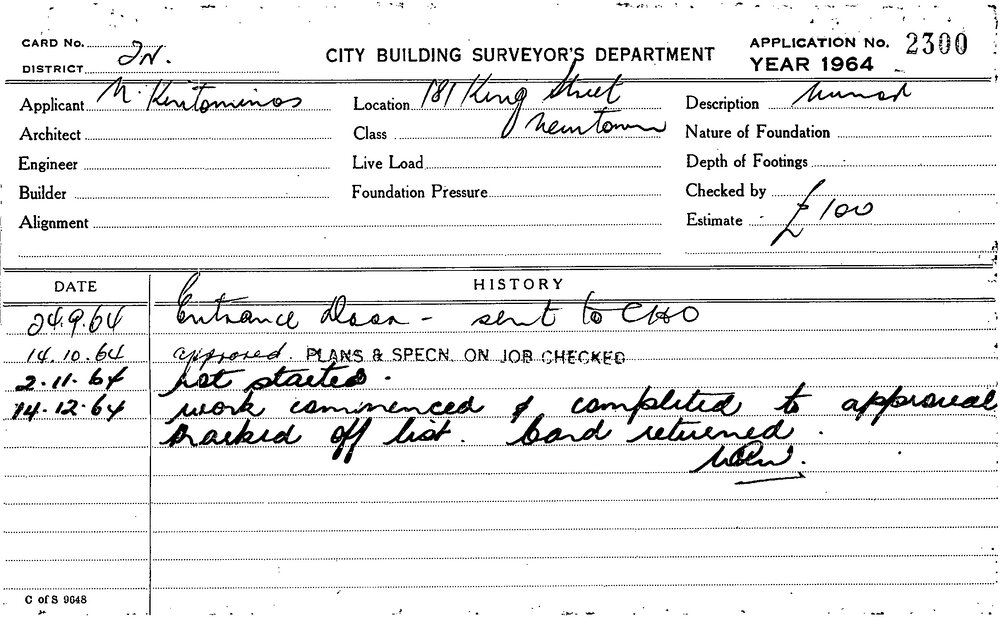 CARD No.
DISTRICT 2N.
CITY BUILDING SURVEYOR'S DEPARTMENT
APPLICATION No. 2300
YEAR 1964
Applicant N. Kritominos
Location 181 King Street
Newtown
Description
Architect
Class
Nature of Foundation
Engineer
Live Load
Depth of Footings
Builder
Foundation Pressure
Checked by
Alignment
Estimate £100
DATE HISTORY
24.9.64 Entrance Door - sent to CHO
14.10.64 approved. PLANS & SPECN. ON JOB CHECKED
2.11.64 not started.
14.12.64 work commenced & completed to approval
marked off list. Card returned.
C of S 9648